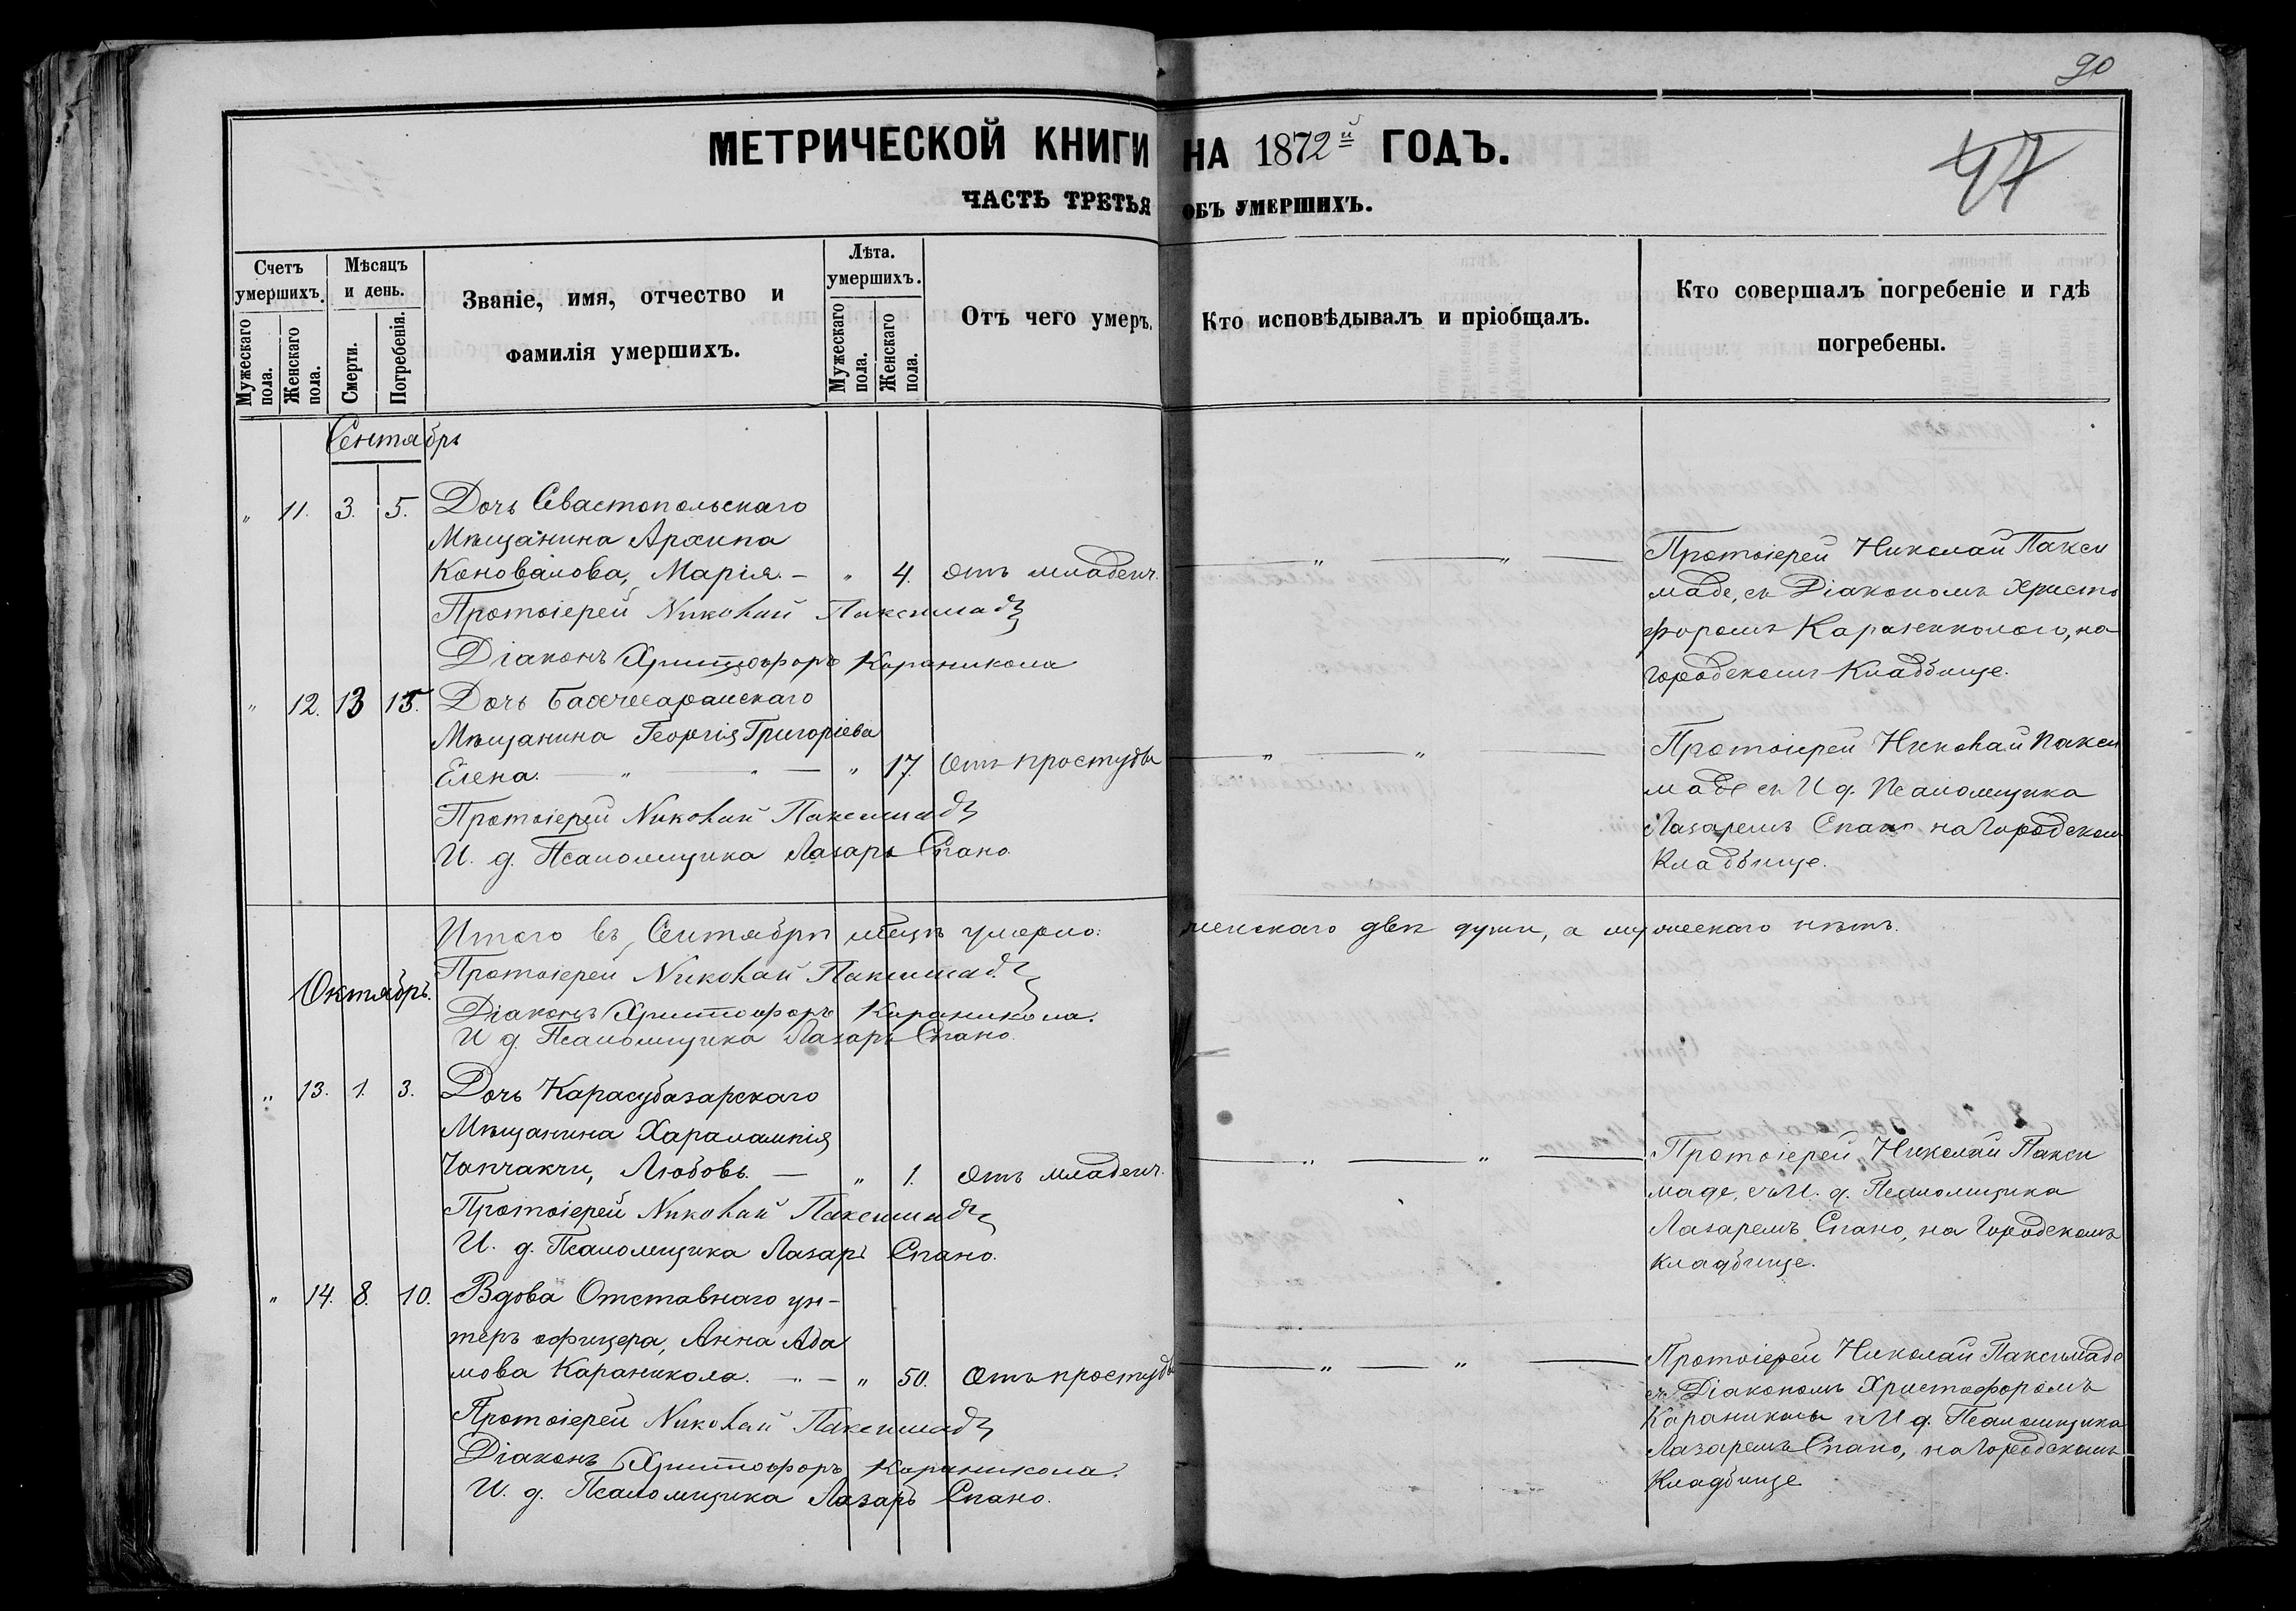 90
МЕТРИЧЕСКОЙ КНИГИ НА 1872й ГОДЪ.
47
ЧАСТЬ ТРЕТЬЯ ОБЪ УМЕРШИХЪ.
Счетъ умершихъ.
Мужескаго пола.
Женскаго пола.
Мѣсяцъ и день.
Смерти.
Погребенія.
Званіе, имя, отчество и
фамилія умершихъ.
Лѣта.
умершихъ.
Мужескаго пола.
Женскаго пола.
Отъ чего умеръ.
Кто исповѣдывалъ и пріобщалъ.
Кто совершалъ погребеніе и гдѣ
погребены.
Сентябрь
" 11. 3. 5. Дочь Севастопольскаго
Мѣщанина Архипа
Коновалова, Марія. — " 4. отъ младенч. — " — " —
Протоіерей Николай Паксимаде
Діаконъ Христофоръ Караникола
Протоіерей Николай Пакси
маде, съ Діакономъ Христо
форомъ Караниколою, на
городскомъ Кладбище.
" 12. 13 15. Дочь Бахчесарайскаго
Мѣщанина Георгія Григоріева
Елена. — " — " — " 17. Отъ простуды — " — " —
Протоіерей Николай Паксимаде
И. д. Псаломщика Лазарь Спано.
Протоіерей Николай Пакси
маде съ И д. Псаломщика
Лазаремъ Спано на Городскомъ
Кладбище.
Итого въ Сентябрѣ мѣсцѣ умерло: женскаго двѣ души, а мужескаго нѣтъ.
Протоіерей Николай Паксимаде
Октябрь.
Діаконъ Христофоръ Караникола.
И д. Псаломщика Лазарь Спано.
" 13. 1. 3. Дочь Карасубазарскаго
Мѣщанина Харалампія
Чапчакчи, Любовь. — " 1. Отъ младенч. — " — " —
Протоіерей Николай Паксимаде
И. д. Псаломщика Лазарь Спано.
Протоіерей Николай Пакси
маде, съ И. д. Псаломщика
Лазаремъ Спано, на Городскомъ
кладбище.
" 14. 8. 10. Вдова Отставнаго ун-
теръ офицера, Анна Ада
мова Караникола. — " — " 50. Отъ простуды — " — " —
Протоіерей Николай Паксимаде
Діаконъ Христофоръ Караникола.
И. д. Псаломщика Лазарь Спано.
Протоіерей Николай Паксимаде
съ Діакономъ Христофоромъ
Караниколы и И д. Псаломщика
Лазаремъ Спано, на Городскомъ
Кладбище